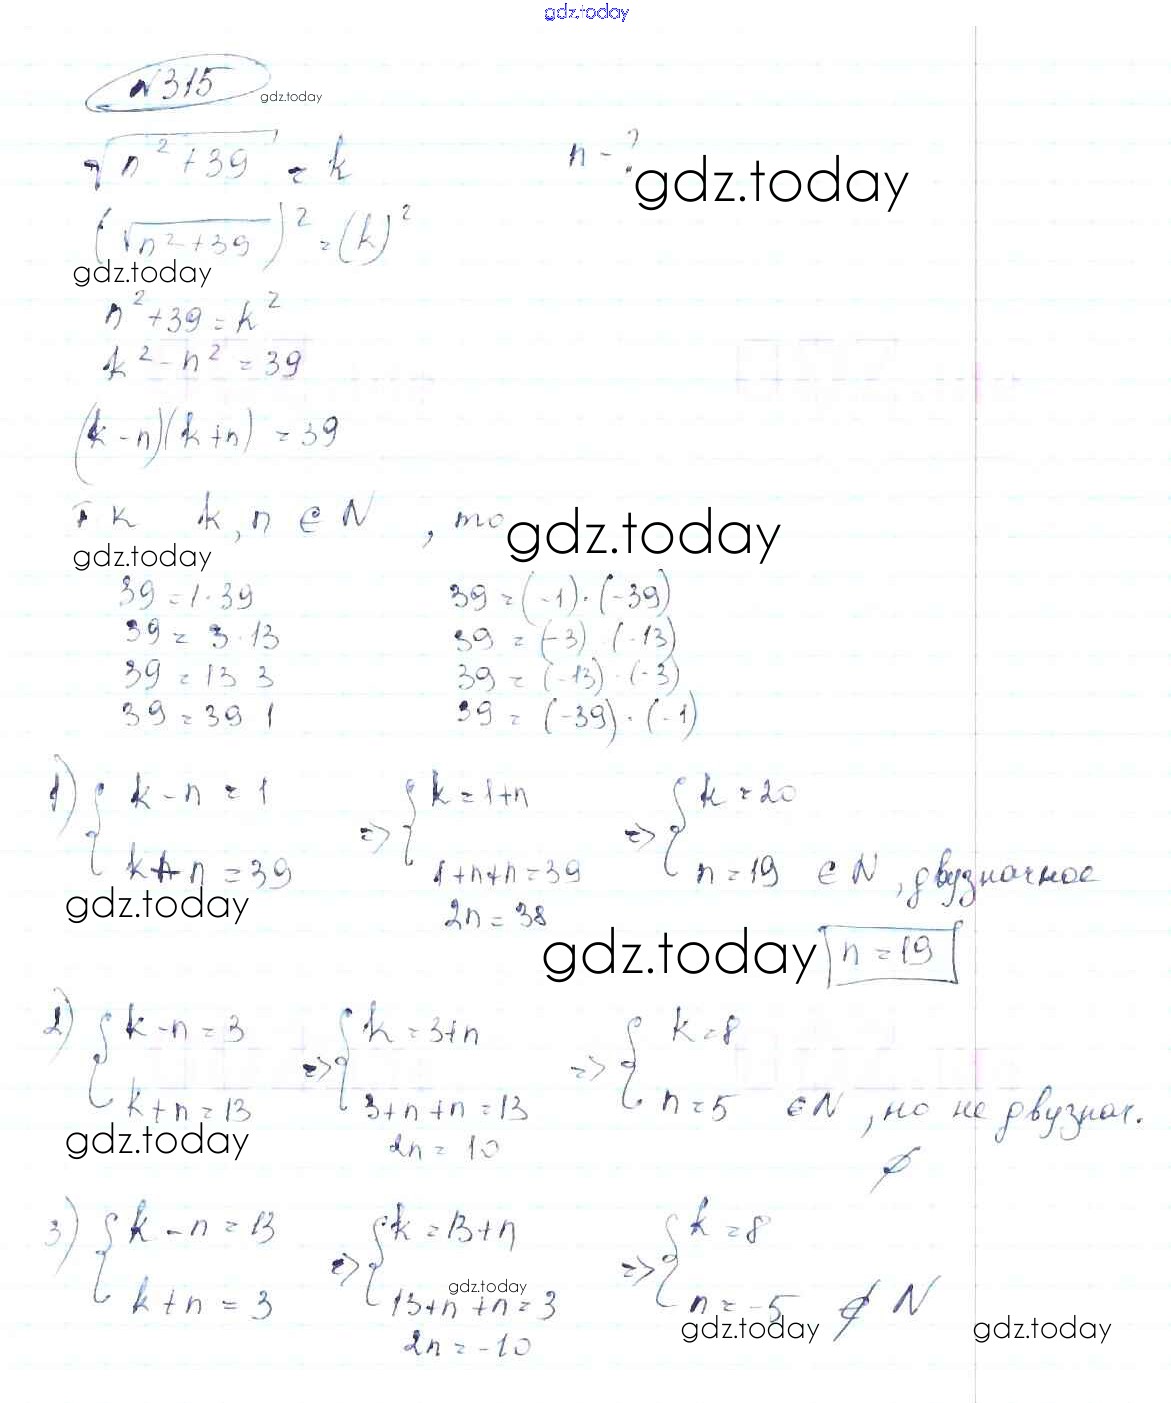 gdz.today
№315
gdz.today
√(n² + 39) = k n - ?
gdz.today
(√(n² + 39))² = (k)²
gdz.today
n² + 39 = k²
k² - n² = 39
(k - n)(k + n) = 39
т к k, n ∈ N , то
gdz.today
gdz.today
39 = 1 · 39 39 = (-1) · (-39)
39 = 3 · 13 39 = (-3) (-13)
39 = 13 3 39 = (-13) · (-3)
39 = 39 1 39 = (-39) · (-1)
1) { k - n = 1 => { k = 1 + n => { k = 20
k + n = 39 1 + n + n = 39 n = 19 ∈ N , двузначное
gdz.today
2n = 38
gdz.today
n = 19
2) { k - n = 3 => { k = 3 + n => { k = 8
k + n = 13 3 + n + n = 13 n = 5 ∈ N , но не двузнач.
gdz.today
2n = 10 ∅
3) { k - n = 13 => { k = 13 + n => { k = 8
gdz.today
k + n = 3 13 + n + n = 3 n = -5 ∉ N
gdz.today
gdz.today
2n = -10